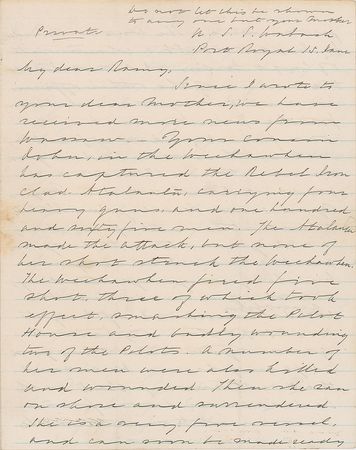 Do not let this be shown
to any one but your Mother
Private
U. S. S. Wabash
Port Royal 15. June
My dear Ramy,
Since I wrote to
your dear Mother, we have
received more news from
Wassaw. Your cousin
John, in the Weehawken
has captured the Rebel Iron
Clad Atalanta, carrying four
heavy guns, and one hundred
and sixty five men. The Atalanta
made the attack, but none of
her shot struck the Weehawken.
The Weehawken fired five
shot, three of which took
effect, smashing the Pilot
House and badly wounding
two of the Pilots. A number of
her men were also killed
and wounded. Then she ran
on shore and surrendered
She is a very fine vessel,
and can soon be made ready